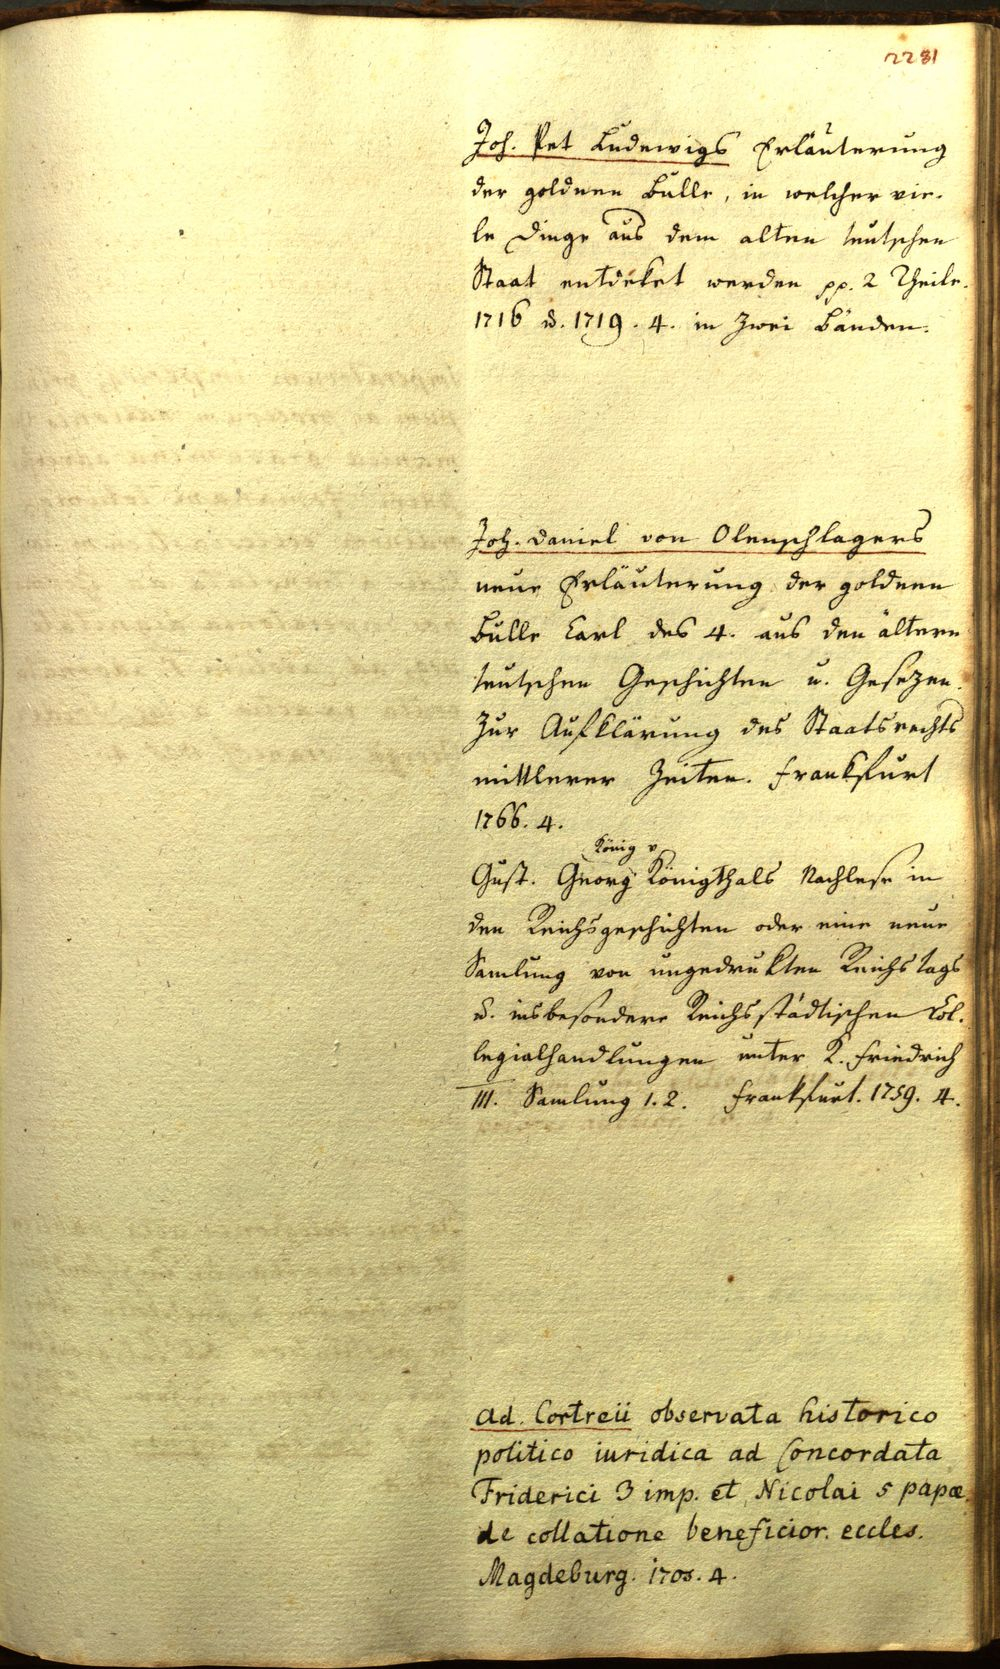 2281
Joh. Pet Ludewigs Erläuterung
der goldnen Bulle, in welcher vie-
le Dinge aus dem alten teutschen
Staat entdeket werden pp. 2 Theile.
1716 u. 1719. 4. in zwei Bänden.
Joh. Daniel von Olenschlagers
neue Erläuterung der goldnen
Bulle Carl des 4. aus den ältern
teutschen Geschichten u. Gesezen.
Zur Aufklärung des Staatsrechts
mittlerer Zeiten. Frankfurt
1766. 4.
König v
Gust. Georg Königthals Nachlese in
den Reichsgeschichten oder eine neue
Samlung von ungedrukten Reichstags
u. insbesondere Reichsstädtischen Col-
legialhandlungen unter K. Friedrich
III. Samlung 1. 2. Frankfurt. 1759. 4.
Ad. Cortreii observata historico
politico iuridica ad Concordata
Friderici 3 imp. et Nicolai 5 papæ.
de collatione beneficior. eccles.
Magdeburg. 1705. 4.